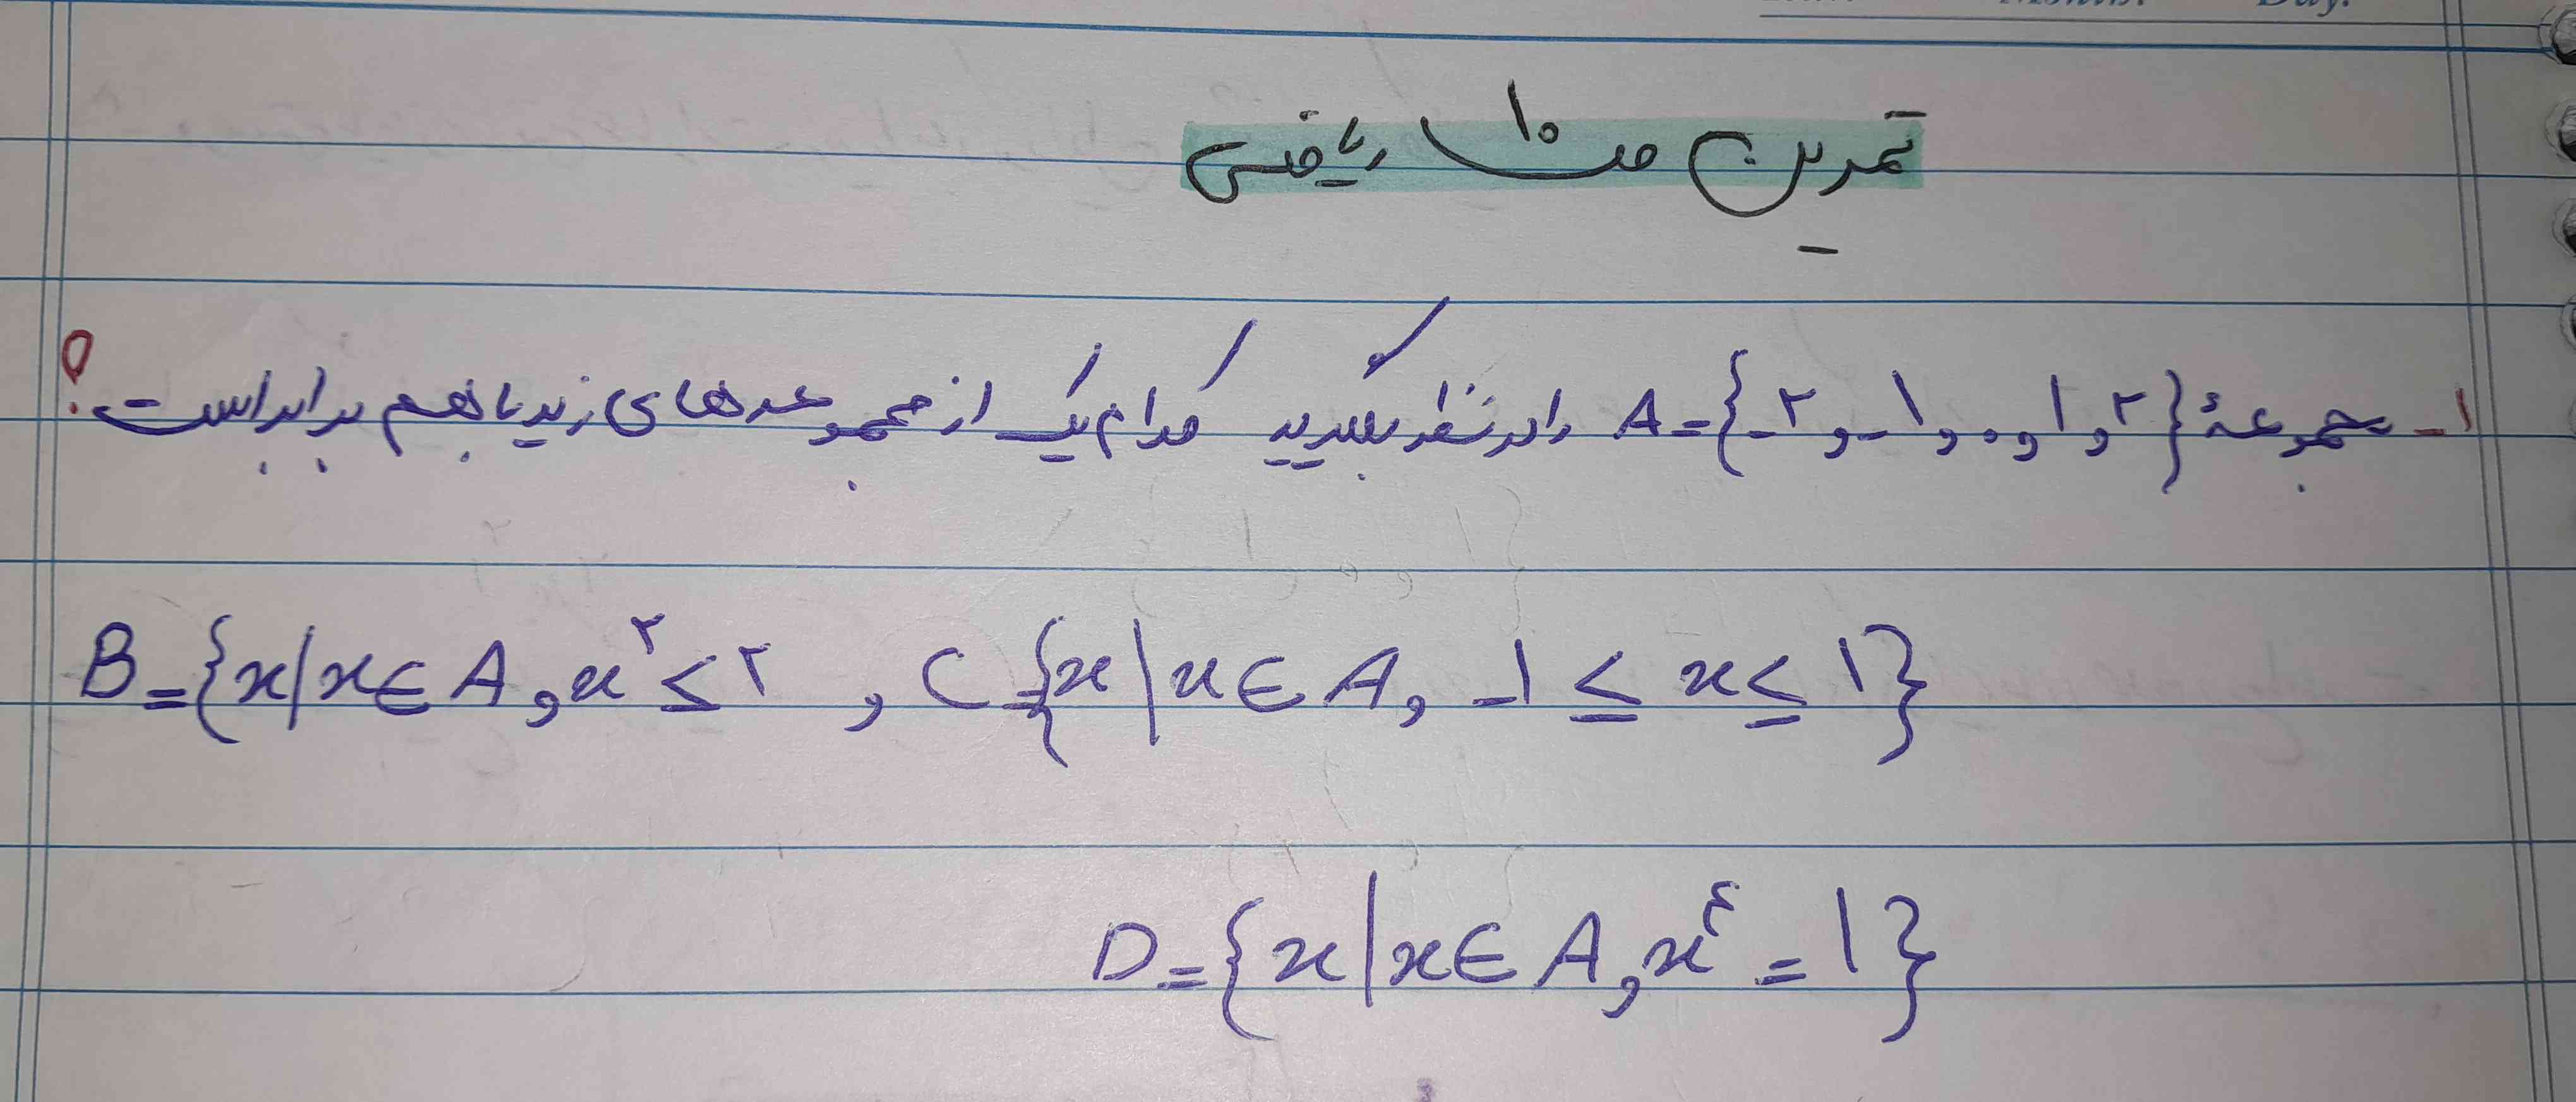 Month: Day:
تمرین ص ۱۰ ریاضی
۱- مجموعهٔ A={-۲ و -۱ و ۰ و ۱ و ۲} را در نظر بگیرید کدام یک از مجموعه‌های زیر با هم برابر است؟
B={x|x∈A, x^۲≤۲ , C={x|x∈A, -۱≤x≤۱}
D={x|x∈A, x^۴=۱}